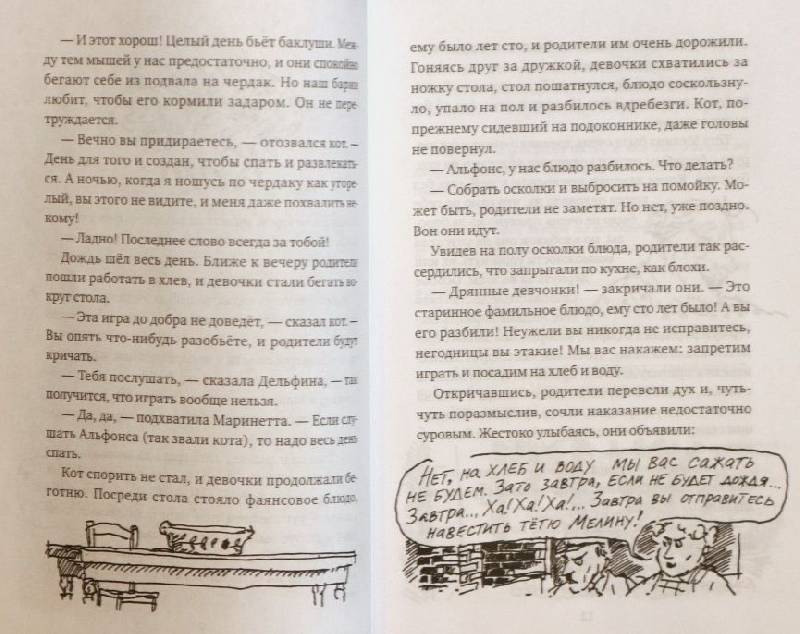 — И этот хорош! Целый день бьёт баклуши. Меж-
ду тем мышей у нас предостаточно, и они спокойно
бегают себе из подвала на чердак. Но наш барин
любит, чтобы его кормили задаром. Он не пере-
труждается.
— Вечно вы придираетесь, — отозвался кот. —
День для того и создан, чтобы спать и развлекать-
ся. А ночью, когда я ношусь по чердаку как угоре-
лый, вы этого не видите, и меня даже похвалить не-
кому!
— Ладно! Последнее слово всегда за тобой!
Дождь шёл весь день. Ближе к вечеру родители
пошли работать в хлев, и девочки стали бегать во-
круг стола.
— Эта игра до добра не доведёт, — сказал кот. —
Вы опять что-нибудь разобьёте, и родители будут
кричать.
— Тебя послушать, — сказала Дельфина, — так
получится, что играть вообще нельзя.
— Да, да, — подхватила Маринетта. — Если слу-
шать Альфонса (так звали кота), то надо весь день
спать.
Кот спорить не стал, и девочки продолжали бе-
готню. Посреди стола стояло фаянсовое блюдо,
ему было лет сто, и родители им очень дорожили.
Гоняясь друг за дружкой, девочки схватились за
ножку стола, стол пошатнулся, блюдо соскользну-
ло, упало на пол и разбилось вдребезги. Кот, по-
прежнему сидевший на подоконнике, даже головы
не повернул.
— Альфонс, у нас блюдо разбилось. Что делать?
— Собрать осколки и выбросить на помойку. Мо-
жет быть, родители не заметят. Но нет, уже поздно.
Вон они идут.
Увидев на полу осколки блюда, родители так рас-
сердились, что запрыгали по кухне, как блохи.
— Дрянные девчонки! — закричали они. — Это
старинное фамильное блюдо, ему сто лет было! А вы
его разбили! Неужели вы никогда не исправитесь,
негодницы вы этакие! Мы вас накажем: запретим
играть и посадим на хлеб и воду.
Откричавшись, родители перевели дух и, чуть-
чуть поразмыслив, сочли наказание недостаточно
суровым. Жестоко улыбаясь, они объявили:
Нет, на хлеб и воду мы вас сажать
не будем. Зато завтра, если не будет дождя...
Завтра... Ха! Ха! Ха!... Завтра вы отправитесь
навестить тётю Мелину!
12